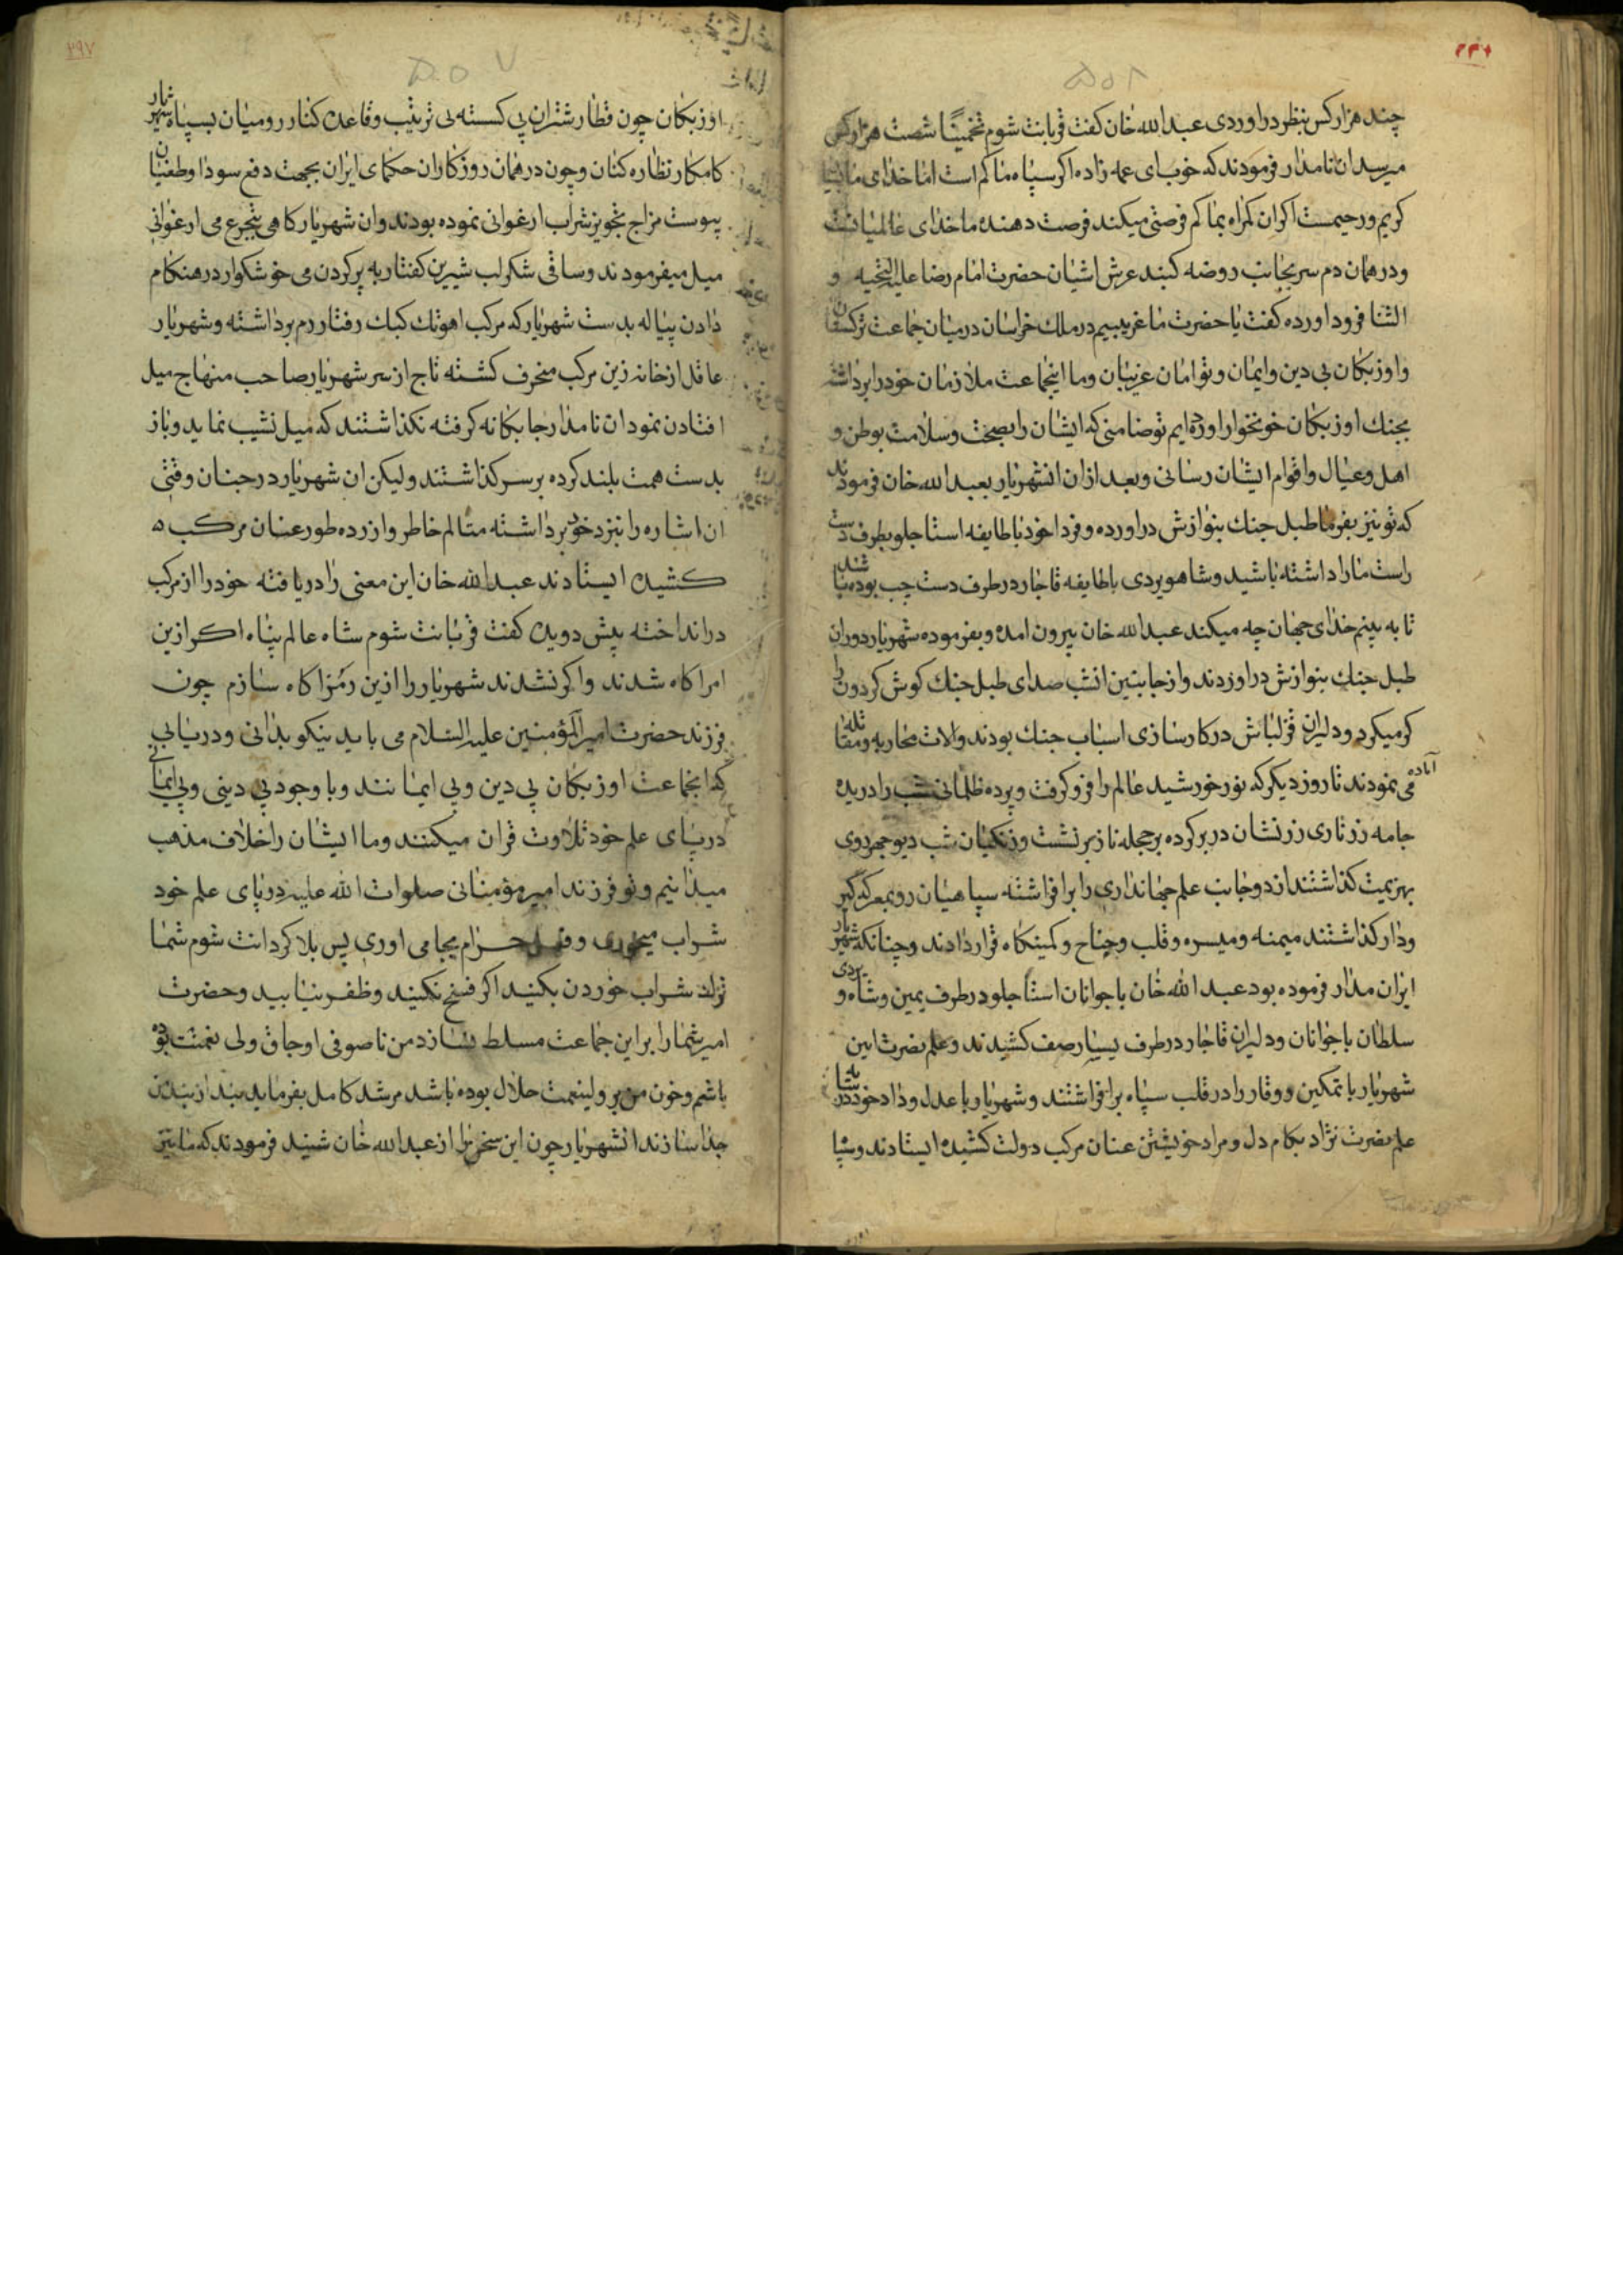 ۲۳۸
چند هزار کس بنظر دراوردی عبدالله خان کفت قربانت شوم تخمینًا شصت هزار کس
میرسد ان نامدار فرمودند که خوب ای عمه زاده اکر سپاه ما کم است اما خدای ما
کریم و رحیمست اکر ان کمراه بما کم فرصتی میکند فرصت دهنده ما خدای عالمیانست
و در همان دم سر بجانب روضه کنبد عرش اشیان حضرت امام رضا علیه التحیه و
الثنا فرود اورده کفت یا حضرت ما غریبیم در ملک خراسان درمیان جماعت ترکستان
و اوزبکان بی دین و ایمان و تو امان غریبان و ما اینجماعت ملازمان خود را برداشته
بجنك اوزبکان خونخوار اورده ایم تو ضامنی که ایشان را بصحت و سلامت بوطن و
اهل و عیال و اقوام ایشان رسانی و بعد از ان انشهریار بعبدالله خان فرمودند
که تو نیز بفرما طبل جنك بنوازش دراورده و فردا خود با طایفه استاجلو بطرف دست
راست ما را داشته باشید و شاهویردی با طایفه قاجار در طرف دست چپ بوده باشند
تا به بینم خدای جهان چه میکند عبدالله خان بیرون امده و بفرموده شهریار دوران
طبل جنك بنوازش دراوردند و از جانبین انشب صدای طبل جنك کوش کردون را
کر میکرد و دلیران قزلباش در کارسازی اسباب جنك بودند والات محاربه و مقاتله
آماده می نمودند تا روز دیکر که نور خورشید عالم را فرو کرفت و پرده ظلمانی شب را دریده
جامه زرتاری زرنشان در بر کرده بر حجله ناز برنشست و زنکیان شب دیو چهر روی
بهزیمت کذاشتند از دو جانب علم جهانداری را برافراشته سپاهیان رو بمعرکه کیر
و دار کذاشتند میمنه و میسره و قلب و جناح و کمینکاه قرار دادند و چنانکه شهریار
ایران مدار فرموده بود عبدالله خان با جوانان استاجلو در طرف یمین و شاه ویردی
سلطان با جوانان و دلیران قاجار در طرف یسار صف کشیدند و علم نصرت ایین
شهریار با تمکین و وقار را در قلب سپاه برافراشتند و شهریار با عدل و داد خود در سایه
علم نصرت نژاد بکام دل و مراد خویشتن عنان مرکب دولت کشیده ایستادند و سپاه
۲۹۷
اوزبکان چون قطار شتران پی کسسته بی ترتیب و قاعده کنار رو میان بسپاه شهریار
کامکار نظاره کنان و چون در همان روزکاران حکمای ایران بجهت دفع سودا و طغیان
یبوست مزاج تجویز شراب ارغوانی نموده بودند و ان شهریار کاهی بتجرع می ارغوانی
میل میفرمودند و ساقی شکر لب شیرین کفتار به پر کردن می خوشکوار در هنکام
دادن پیاله بدست شهریار که مرکب اهوتك کبك رفتار رم برداشته و شهریار
عاقل از خانه زین مرکب منحرف کشته تاج از سر شهریار صاحب منهاج میل
افتادن نمود ان نامدار جابکانه کرفته نکذاشتند که میل نشیب نماید و باز
بدست همت بلند کرده بر سر کذاشتند و لیکن ان شهریار در جنان وقتی
ان اشاره را بنزد خود برداشته متالم خاطر و ازرده طور عنان مرکب
کشیده ایستادند عبدالله خان این معنی را دریافته خود را از مرکب
درانداخته پیش دویده کفت قربانت شوم شاه عالم پناه اکر ازین
امر اکاه شدند و اکر نشدند شهریار را ازین رمز اکاه سازم چون
فرزند حضرت امیر المؤمنین علیه السلام می باید نیکو بدانی و دریابی
که اینجماعت اوزبکان بی دین و بی ایمانند و با وجود بی دینی و بی ایمانی
درپای علم خود تلاوت قران میکنند و ما ایشان را خلاف مذهب
میدانیم و تو فرزند امیر مؤمنانی صلوات الله علیه درپای علم خود
شراب میخوری و فعل حرام بجا می اوری پس بلا کردانت شوم شما
ترك شراب خوردن بکنید اکر فسخ نکنید و ظفر نیابید و حضرت
امیر شما را بر این جماعت مسلط نسازد من ناصوفی اوجاق ولی نعمت بوده
باشم و خون من بر ولینعمت حلال بوده باشد مرشد کامل بفرماید بند از بندم
جدا سازند انشهریار چون این سخن را از عبدالله خان شنید فرمودند که ما نیز